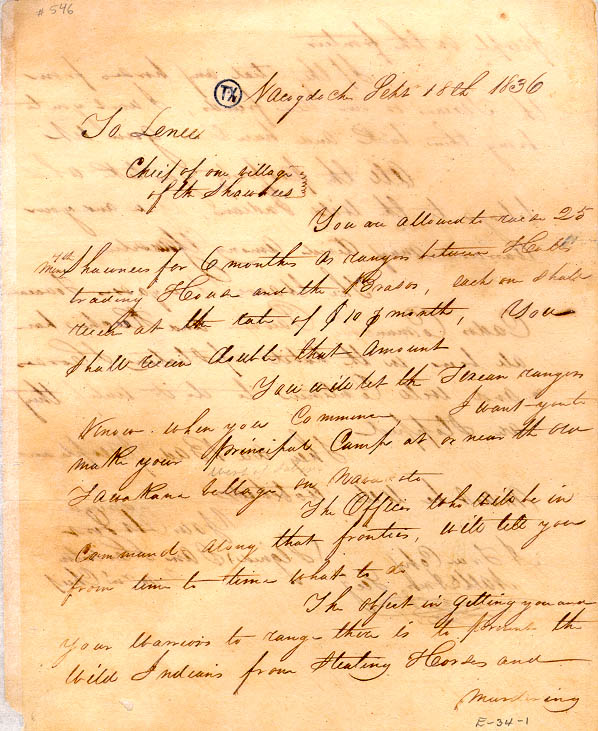 # 546
TX
Nacogdoches Sept 18th 1836
To Linee
Chief of one village
of the Shawnees
You are allowed to raise 25
Shawnees for 6 months as rangers between Halls
trading House and the Brasos, each one shall
receive at the rate of $10 p month, You
shall receive double that amount
You will let the Texean rangers
Know when you Commence I want you to
make your principal Camp at or near the old
Tawakana village on Navasoto
The Officer who will be in
Command along that frontier, will tell you
from time to time what to do
The object in getting you and
your warriors to range there is to prevent the
Wild Indians from Stealing Horses and
murdering
E-34-1